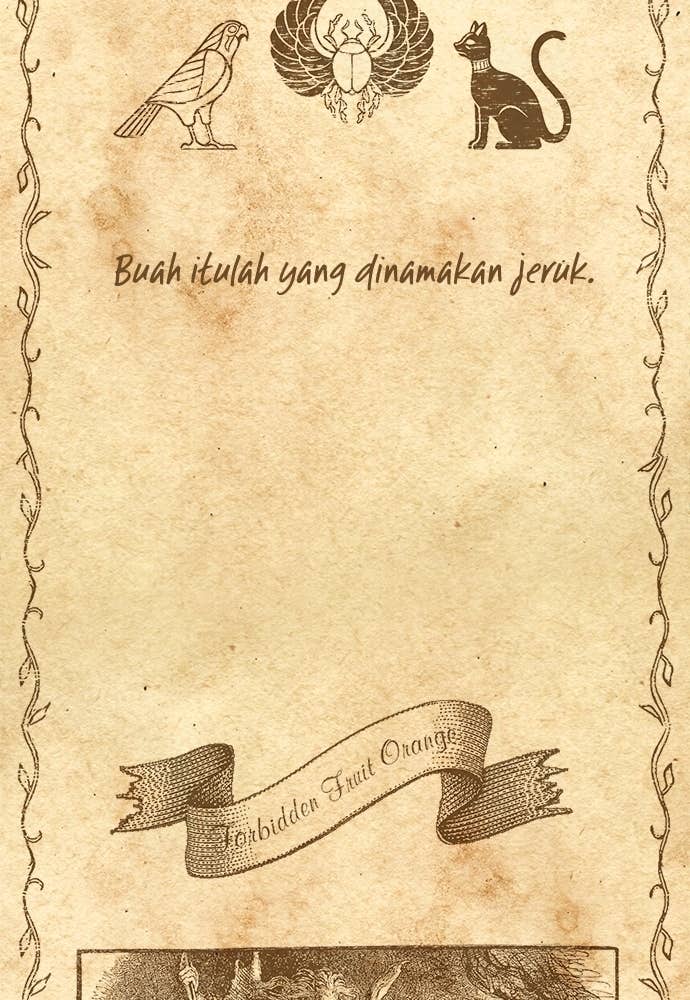 Buah itulah yang dinamakan jeruk.
Forbidden Fruit Orange